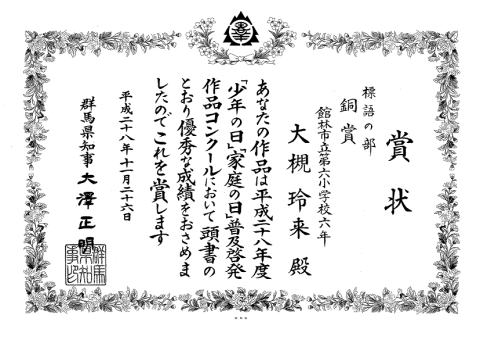 賞状
標語の部
銅賞
館林市立第六小学校六年
大槻玲来 殿
あなたの作品は平成二十八年度
「少年の日」「家庭の日」普及啓発
作品コンクールにおいて頭書の
とおり優秀な成績をおさめま
したのでこれを賞します
平成二十八年十一月二十六日
群馬県知事 大澤正明
群馬県知事之印